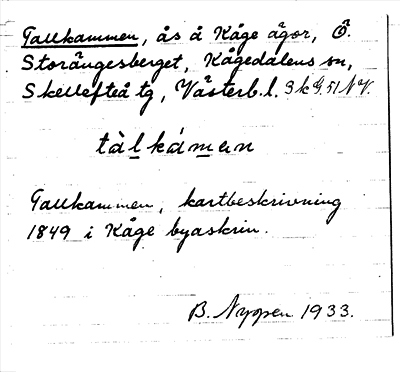 Tallkammen, ås å Kåge ägor, Ö.
Storängesberget, Kågedalens sn,
Skellefteå tg, Västerb. l. 3 k G. 51 NV.
tàlkámən
Tallkammen, kartbeskrivning
1849 i Kåge byaskrin.
B. Nyppen 1933.